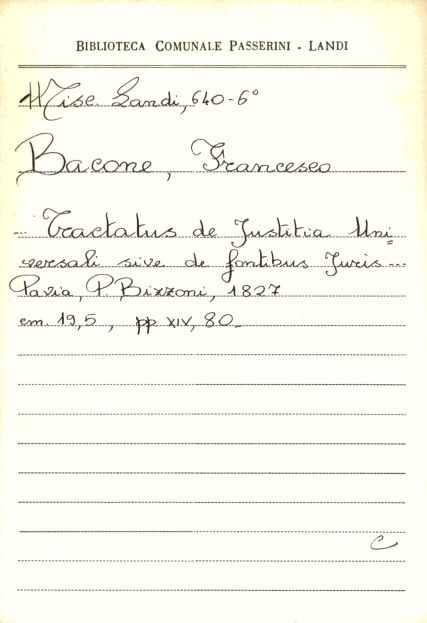 BIBLIOTECA COMUNALE PASSERINI - LANDI
Misc. Landi, 640-6°
Bacone, Francesco
... Tractatus de Justitia Uni=
versali sive de fontibus Juris...
Pavia, P. Bizzoni, 1827
cm. 19,5, pp XIV, 80_
C